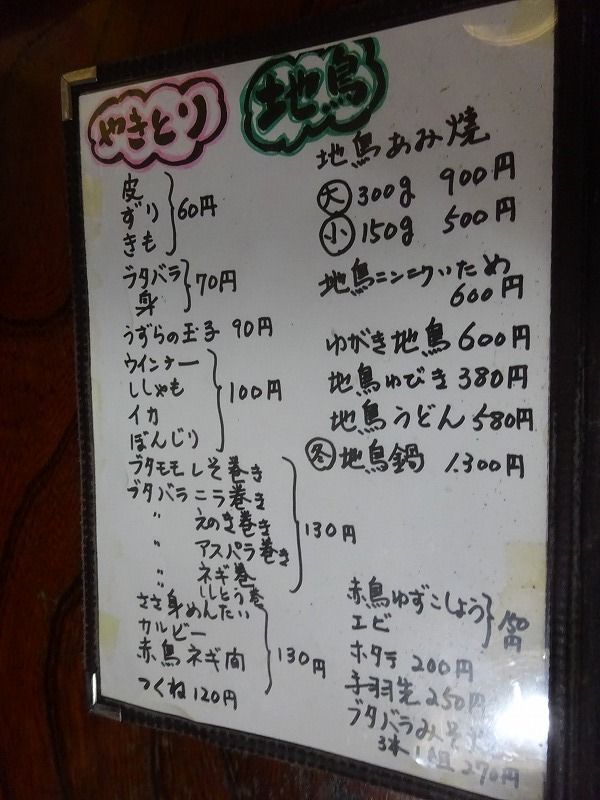 やきとり
皮
ずり
きも
60円
ブタバラ
身
70円
うずらの玉子 90円
ウインナー
ししゃも
イカ
ぼんじり
100円
ブタモモしそ巻き
ブタバラニラ巻き
〃 えのき巻き
〃 アスパラ巻き
〃 ネギ巻
ししとう巻
130円
ささ身めんたい
カルビー
赤鳥ネギ間
130円
つくね 120円
地鳥
地鳥あみ焼
大 300g 900円
小 150g 500円
地鳥ニンニクいため
600円
ゆがき地鳥 600円
地鳥ゆびき 380円
地鳥うどん 580円
冬 地鳥鍋 1.300円
赤鳥ゆずこしょう
エビ
150円
ホタテ 200円
手羽先 250円
ブタバラみそ
3本 1組 270円